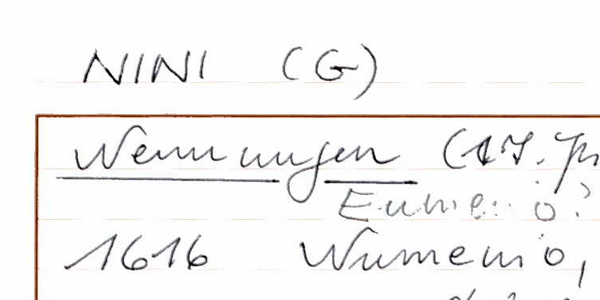 NINI (G)
Wennungen (17. Jh
Eume
1616 Numenio,